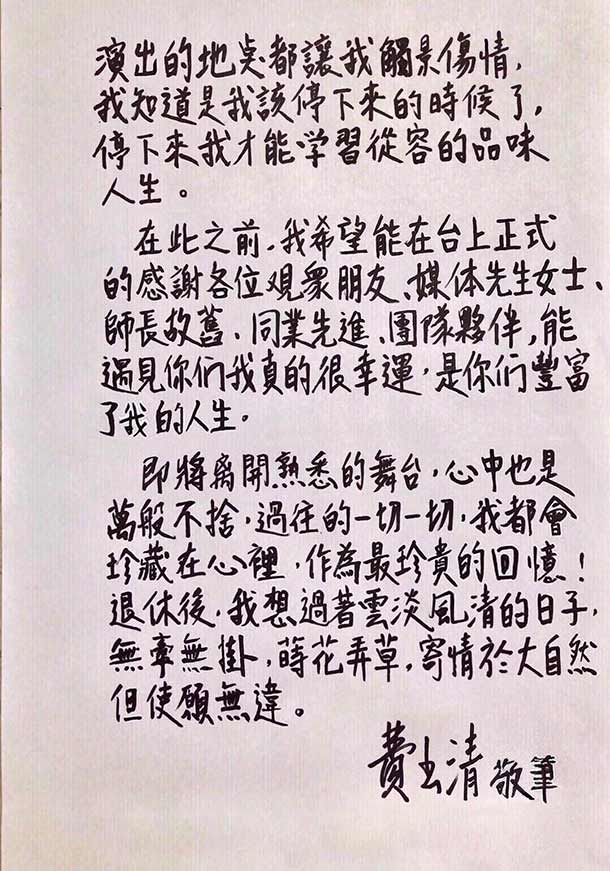 演出的地点都讓我觸景傷情，
我知道是我該停下來的時候了，
停下來我才能学習從容的品味
人生。
在此之前，我希望能在台上正式
的感謝各位观眾朋友、媒体先生女士、
師長故舊、同業先進、團隊夥伴，能
遇見你们我真的很幸運，是你们豐富
了我的人生。
即將离開熟悉的舞台，心中也是
萬般不捨，過往的一切一切，我都會
珍藏在心裡，作為最珍貴的回憶！
退休後，我想過著雲淡風清的日子，
無牽無掛，蒔花弄草，寄情於大自然
但使願無違。
費玉清 敬筆